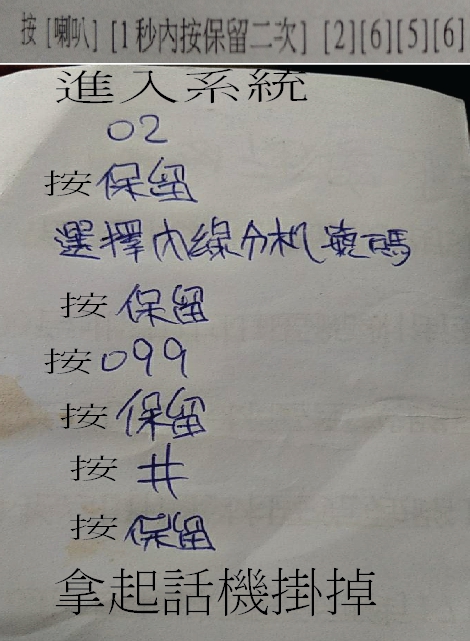 按 [喇叭] [1 秒內按保留二次] [2][6][5][6]
進入系統
02
按保留
選擇內線分机號碼
按保留
按099
按保留
按 #
按保留
拿起話機掛掉